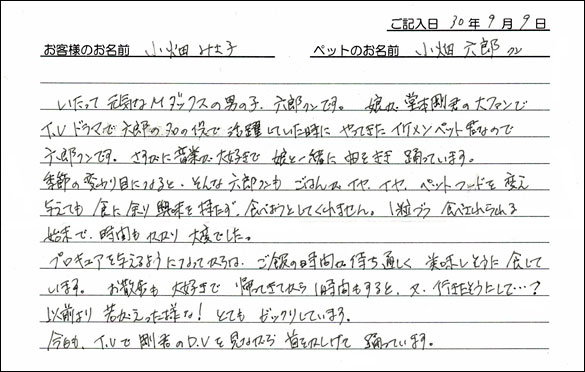 ご記入日 30年9月9日
お客様のお名前 小畑 みさ子 ペットのお名前 小畑 六郎クン
いたって元気なMダックスの男の子、六郎クンです。 娘が堂本剛君の大ファンで
T.Vドラマで六郎の刃の役で活躍していた時にやってきたイケメンペット君なので
六郎クンです。さすがに音楽が大好きで娘と一緒に曲をきき踊っています。
季節の変わり目になると、そんな六郎クンもごはんがイヤ、イヤ、ペットフードを変え
与えても食に余り興味を持たず、食べようとしてくれません。1粒づつ食べさせられる
始末で、時間もかかり大変でした。
プロキュアを与えるようになってからは、ご飯の時間が待ち遠しく美味しそうに食して
います。 お散歩も大好きで帰ってきてから1時間もすると、又、行きたそうにして…?
以前より若がえった様な! とてもビックリしています。
今日も、T.Vで剛君のD.Vを見ながら首をかしげて踊っています。